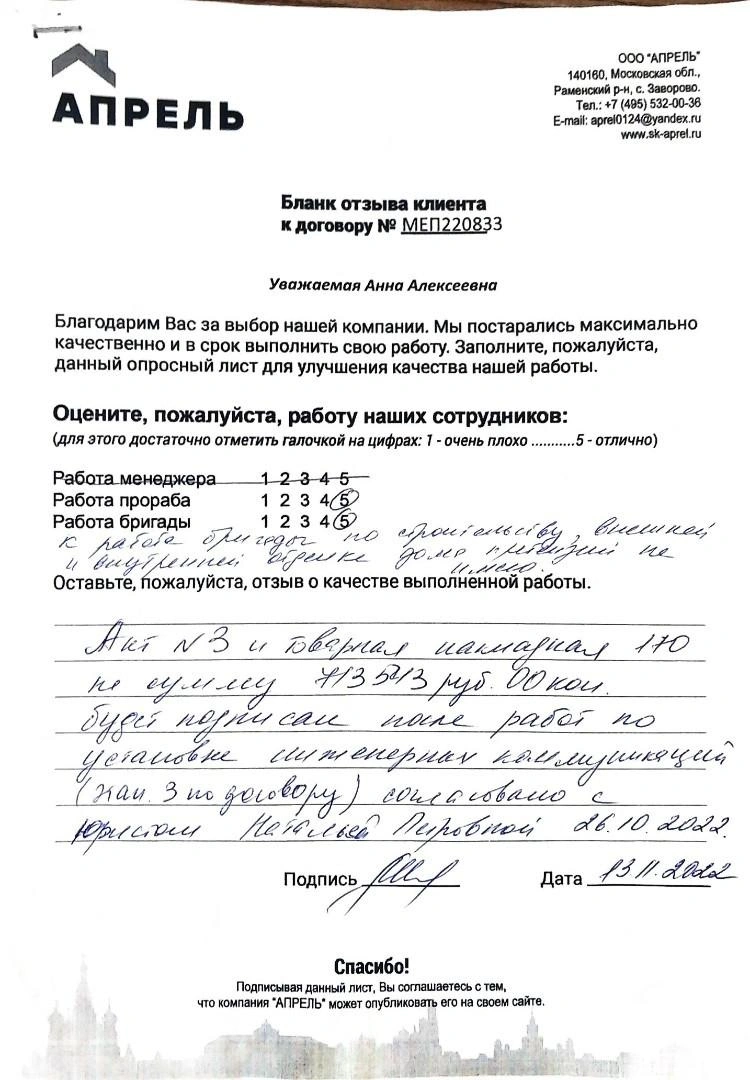 АПРЕЛЬ
ООО "АПРЕЛЬ"
140160, Московская обл.,
Раменский р-н, с. Заворово.
Тел.: +7 (495) 532-00-36
E-mail: aprel0124@yandex.ru
www.sk-aprel.ru
Бланк отзыва клиента
к договору № МЕП220833
Уважаемая Анна Алексеевна
Благодарим Вас за выбор нашей компании. Мы постарались максимально
качественно и в срок выполнить свою работу. Заполните, пожалуйста,
данный опросный лист для улучшения качества нашей работы.
Оцените, пожалуйста, работу наших сотрудников:
(для этого достаточно отметить галочкой на цифрах: 1 - очень плохо ...........5 - отлично)
Работа менеджера 1 2 3 4 5
Работа прораба 1 2 3 4 5
Работа бригады 1 2 3 4 5
к работе бригады по строительству, внешней
и внутренней отделке дома претензий не
имею.
Оставьте, пожалуйста, отзыв о качестве выполненной работы.
Акт №3 и товарная накладная 170
на сумму 713543 руб. 00 коп.
будет подписан после работ по
установке инженерных коммуникаций
(этап 3 по договору) согласовано с
юристом Натальей Петровной 26.10.2022.
Подпись Дата 13.11.2022
Спасибо!
Подписывая данный лист, Вы соглашаетесь с тем,
что компания "АПРЕЛЬ" может опубликовать его на своем сайте.